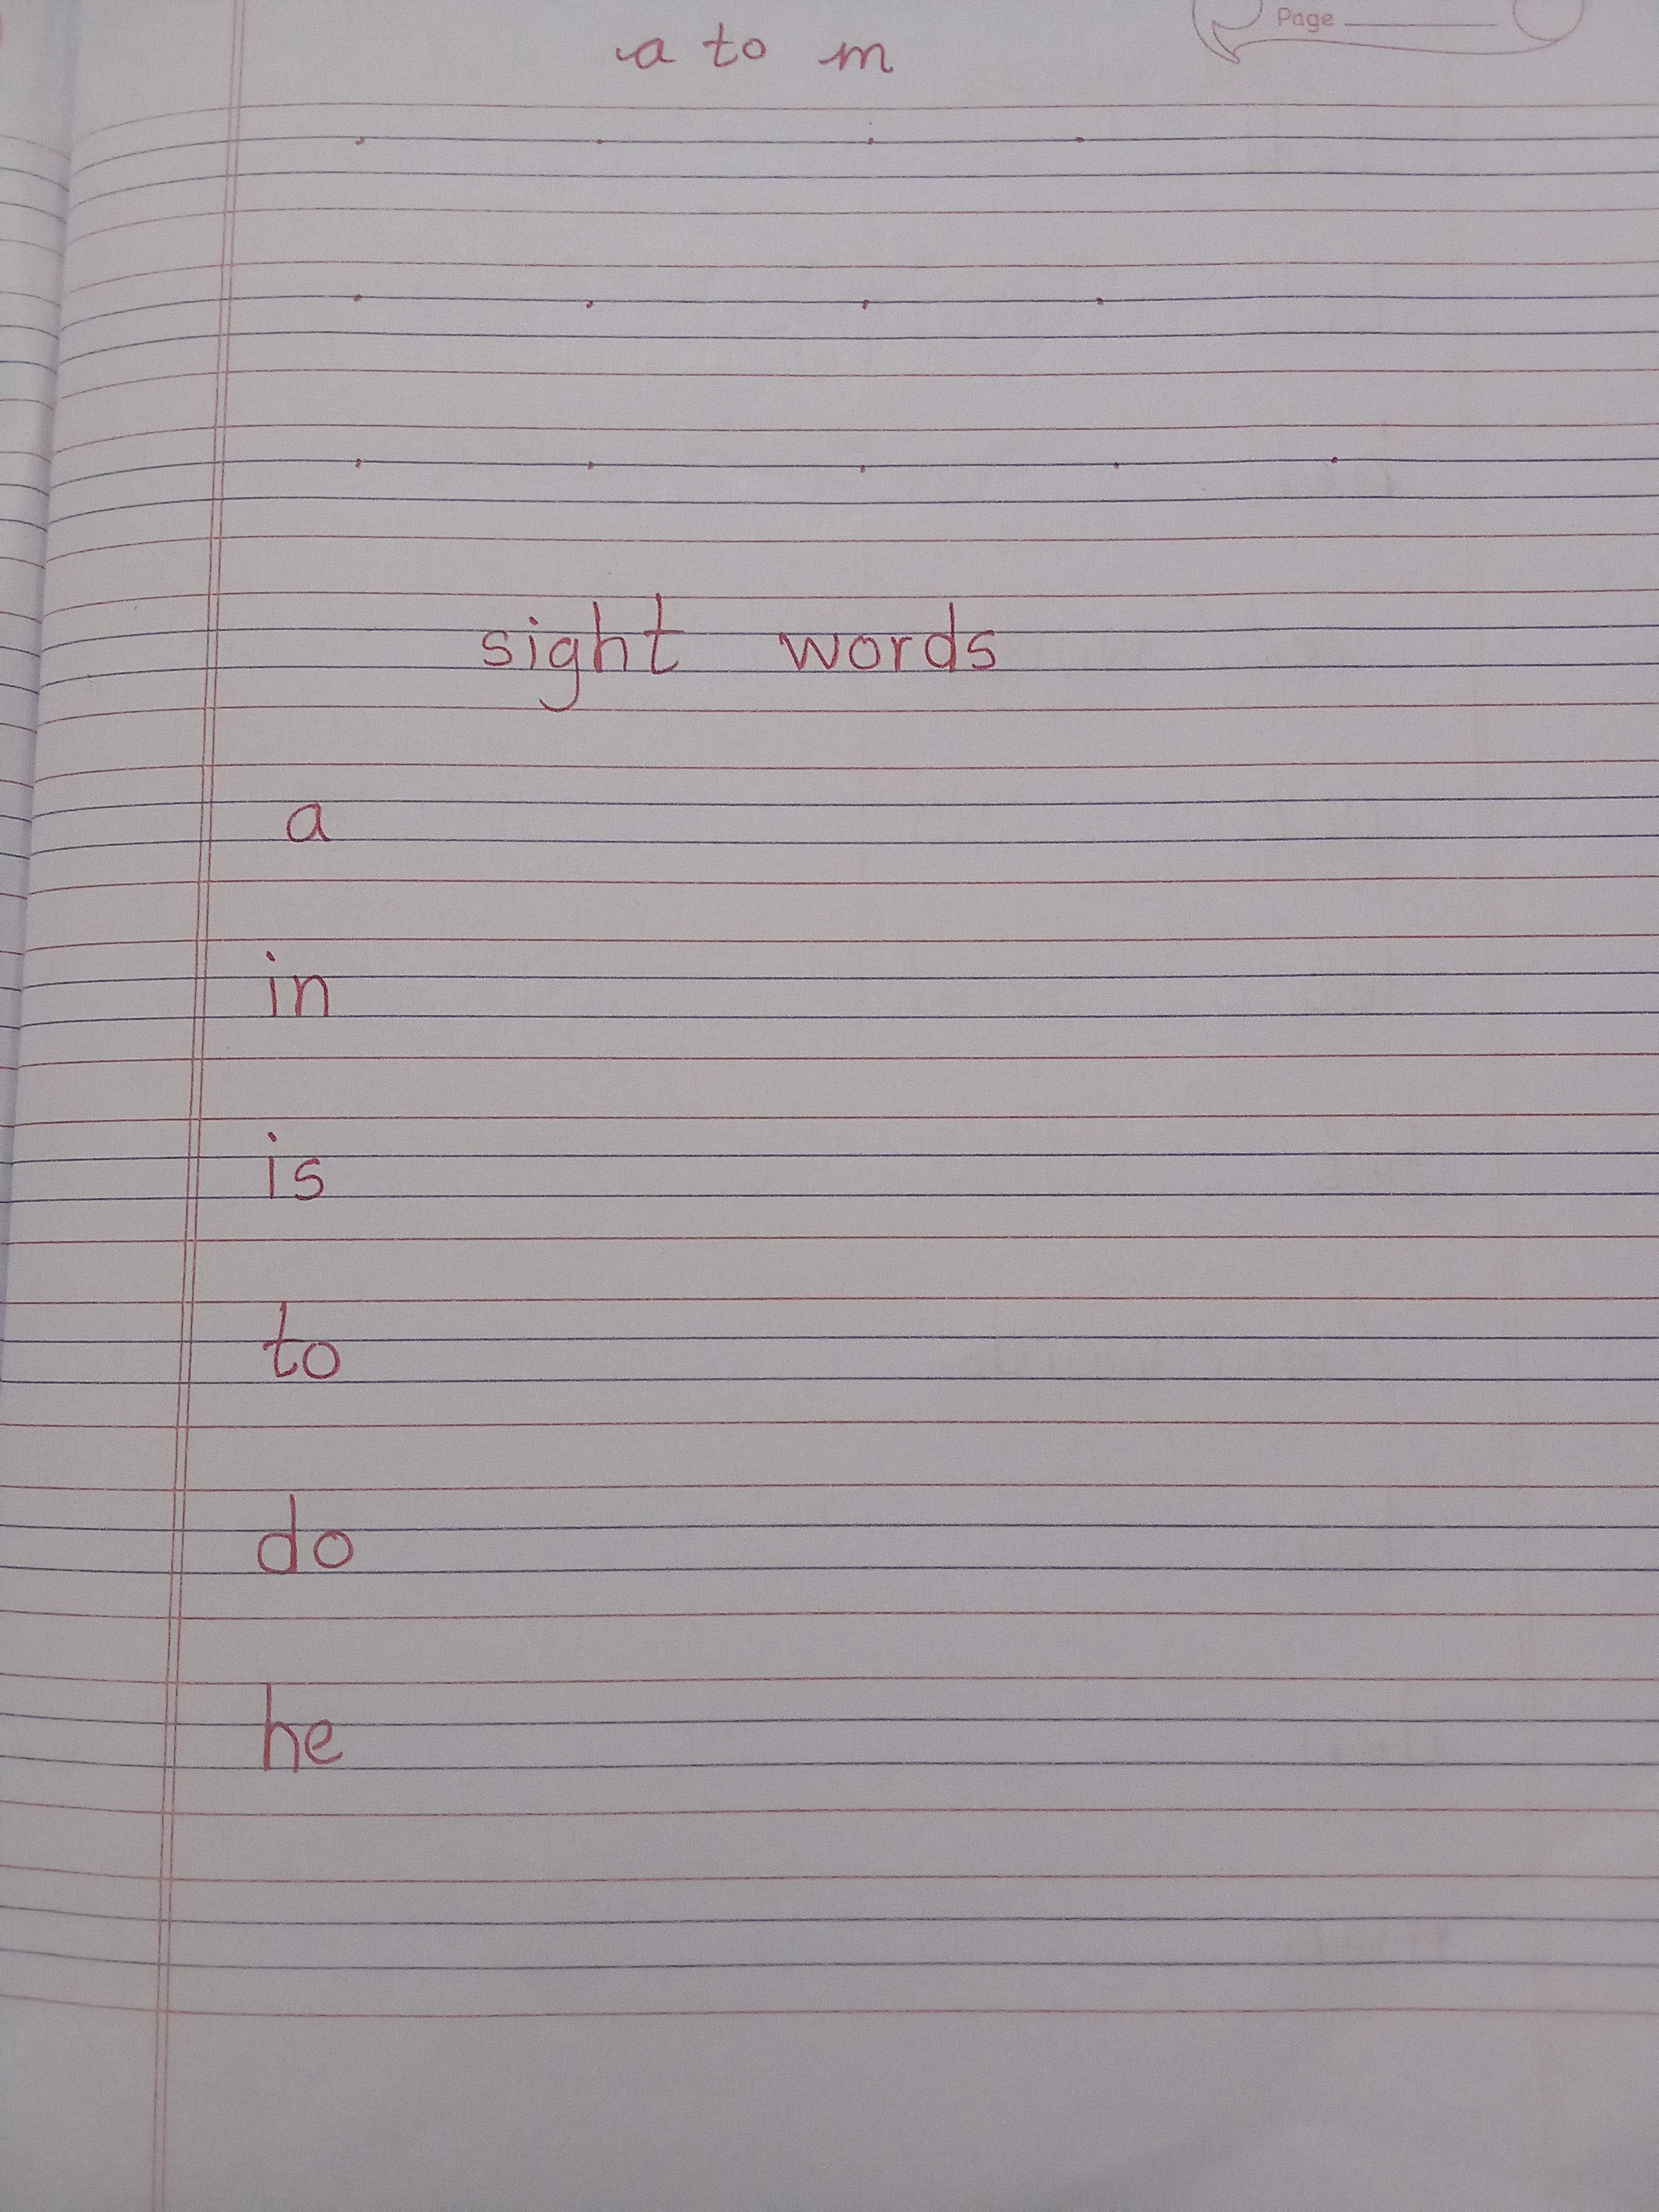 Page
a to m
sight words
a
in
is
to
do
he